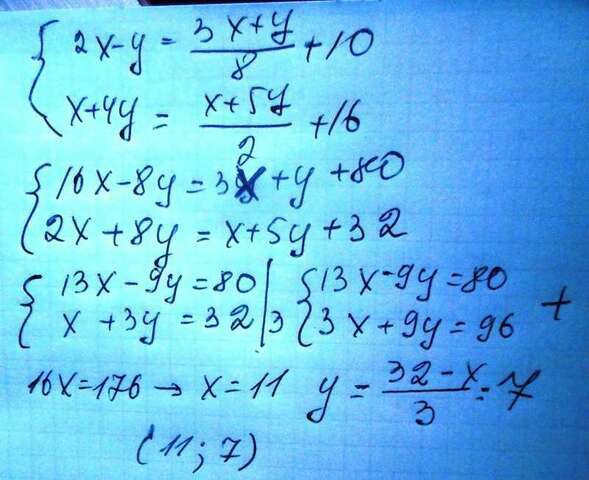 { 2x-y = (3x+y)/8 +10
x+4y = (x+5y)/2 +16
{ 16x-8y=3x+y+80
2x+8y = x+5y+32
{ 13x-9y=80 | { 13x-9y=80 +
x+3y=32 | 3 3x+9y=96
16x=176 → x=11 y = (32-x)/3 = 7
(11; 7)